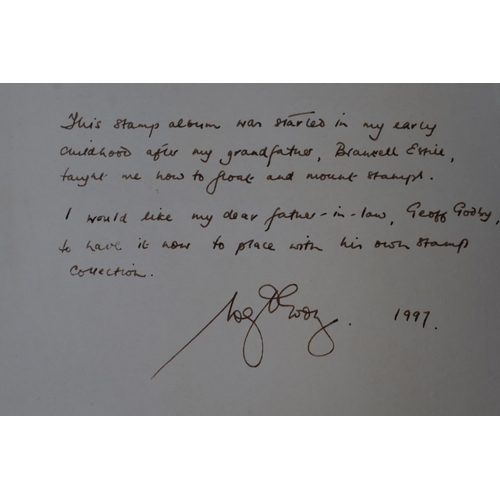 This stamp album was started in my early
childhood after my grandfather, Bramwell
taught me how to float and mount stamps.
I would like my dear father-in-law, Geoff Godby,
to have it now to place with his own stamp
collection.
1997.